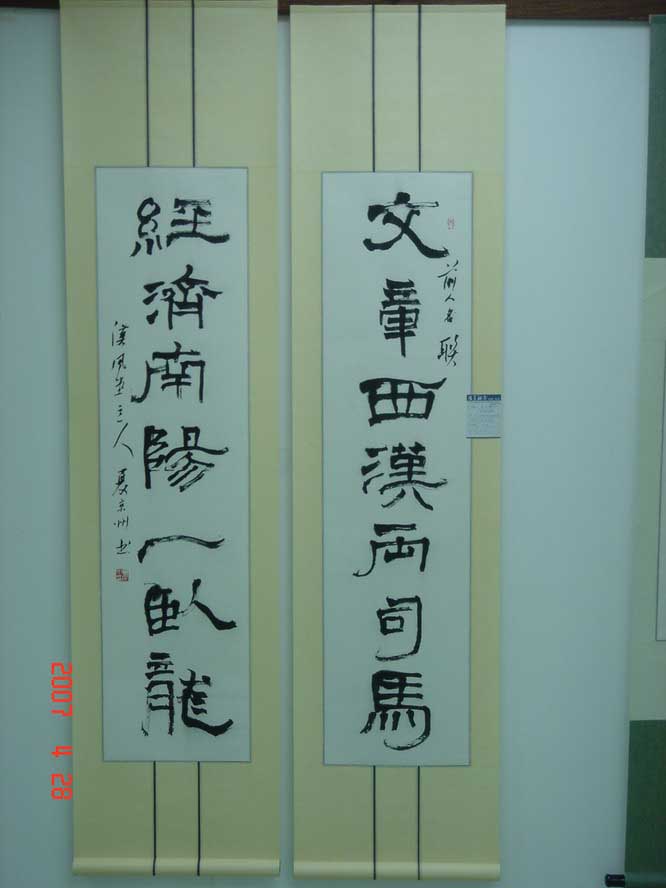 文章西漢兩司馬
前人名联
經濟南陽一臥龍
漢風堂主人夏京州书
2007 4 28